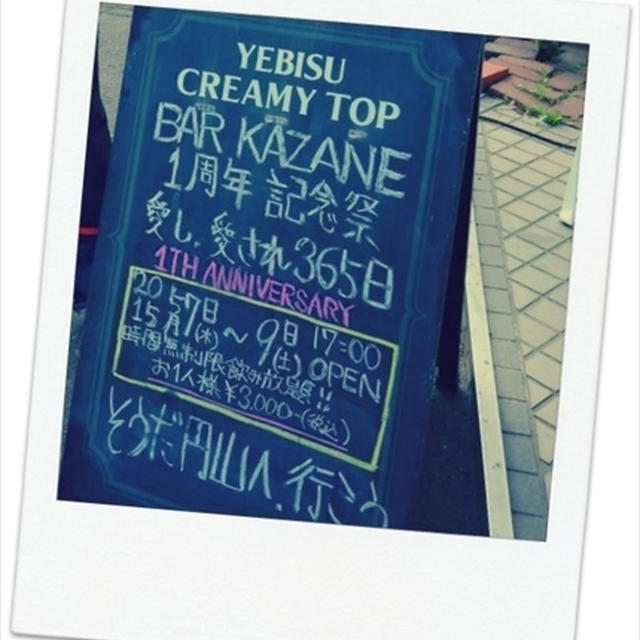 YEBISU
CREAMY TOP
BAR KAZANE
1周年記念祭
愛し、愛され365日
1TH ANNIVERSARY
2015 5月7日(木)〜9日(土) 17:00 OPEN
時間無制限飲み放題!!
お1人様¥3,000-(税込)
そうだ円山へ、行こう